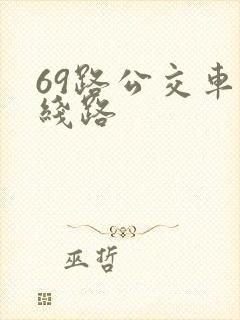 69路公交車
綫路
巫哲